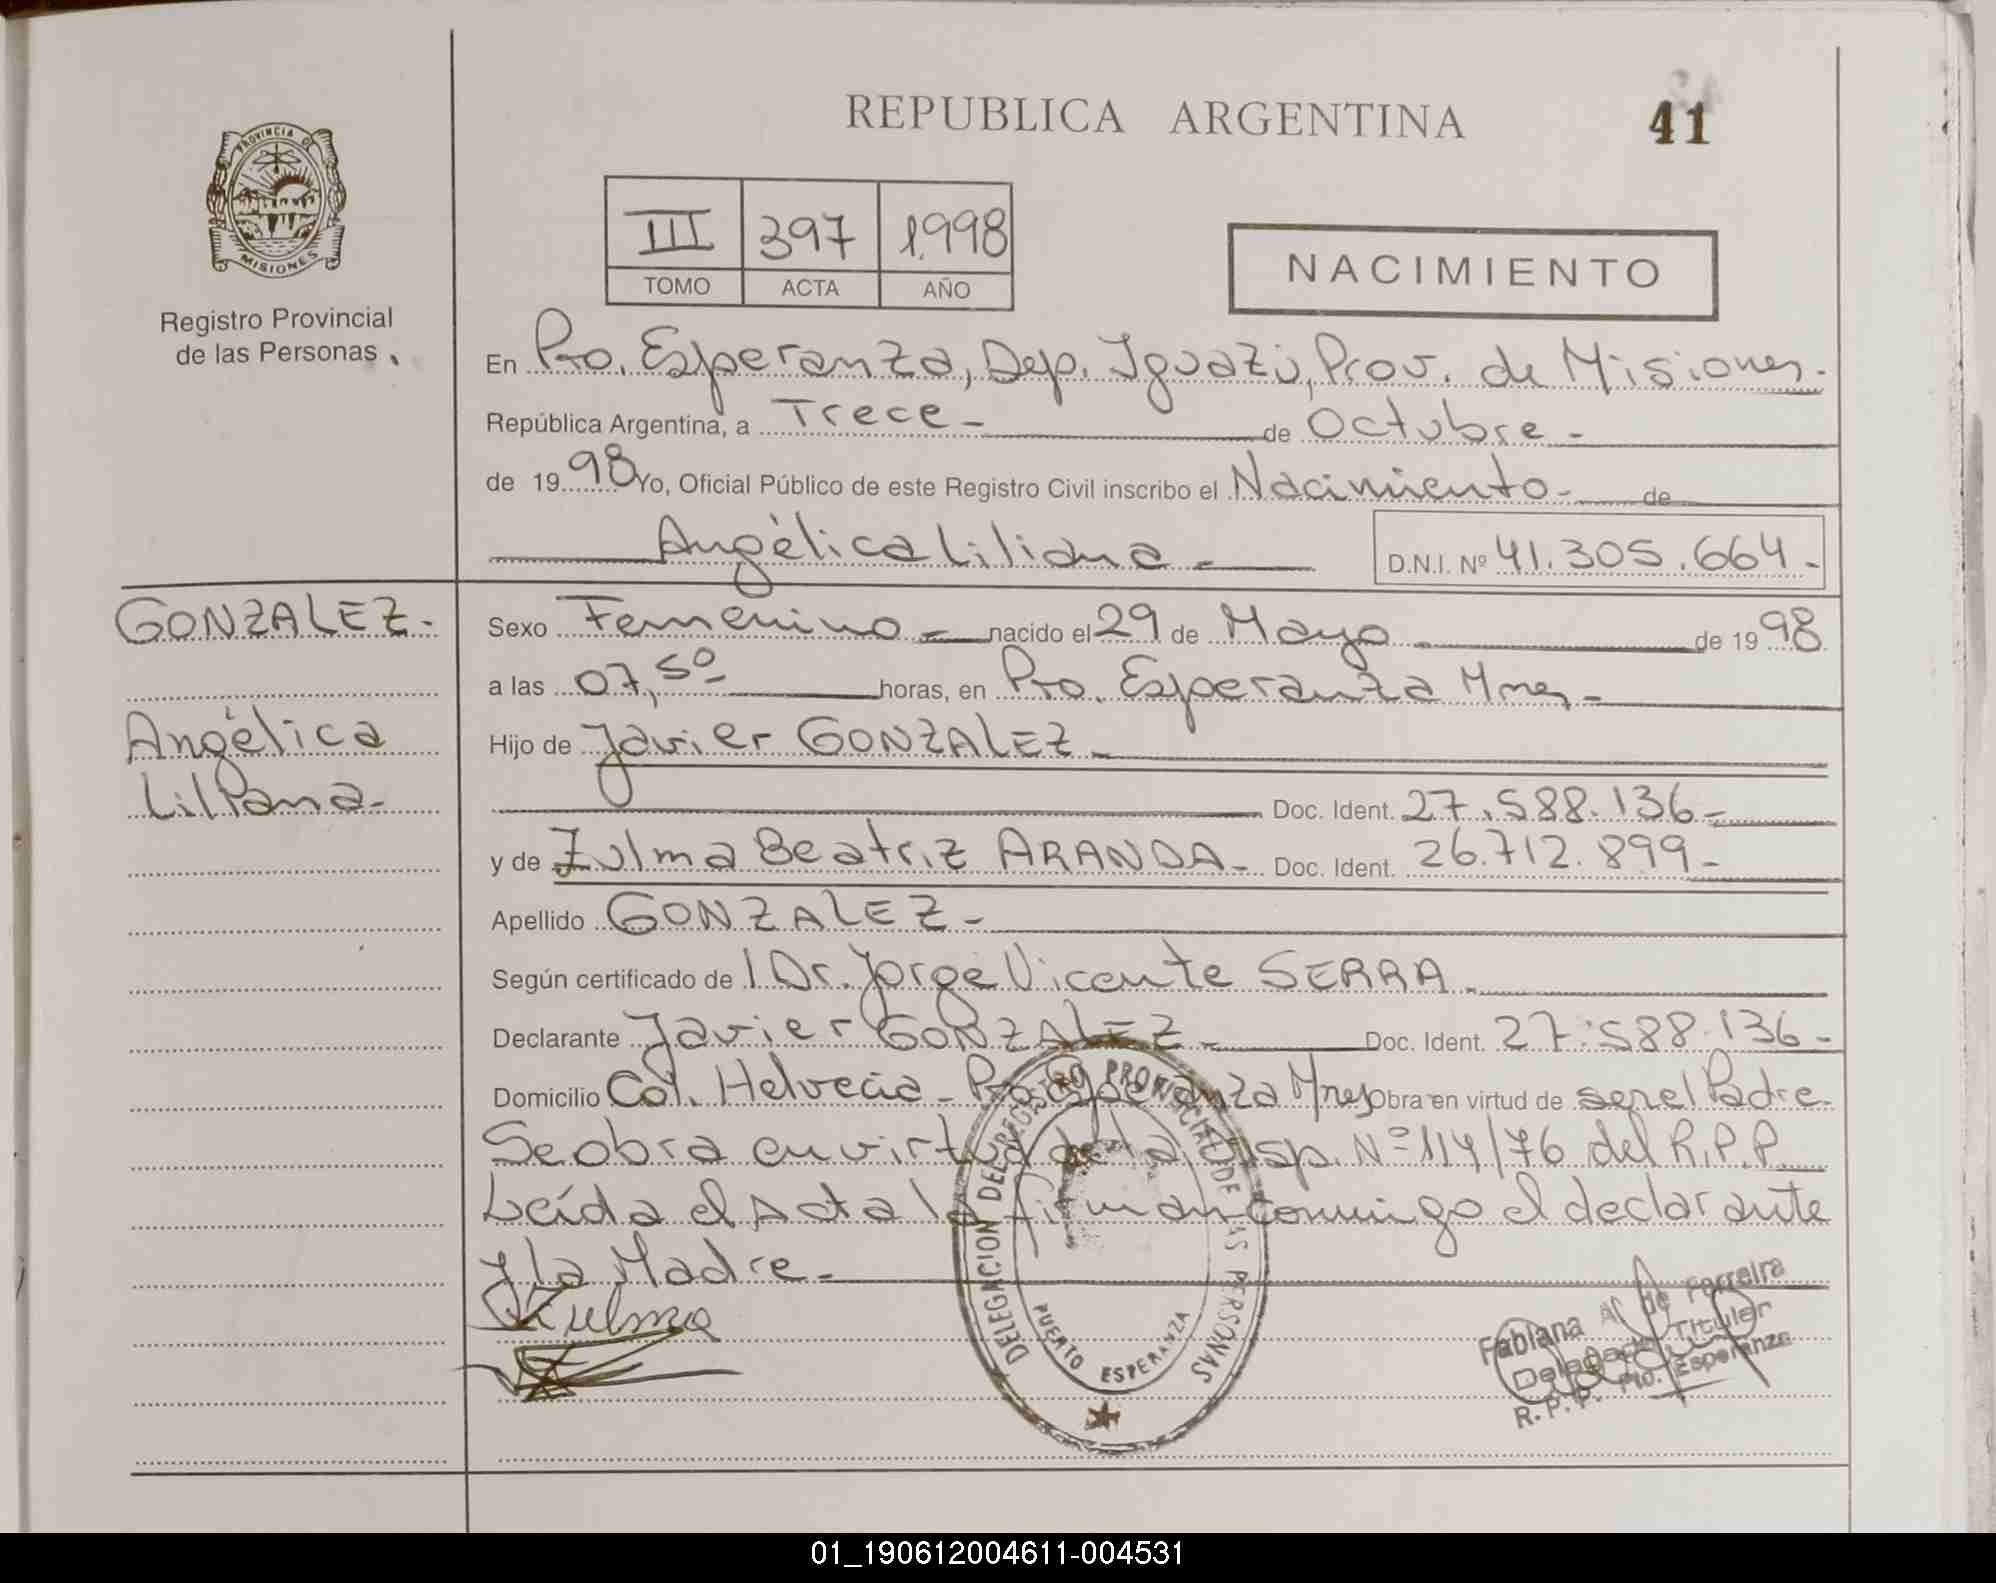 REPUBLICA ARGENTINA
41
PROVINCIA D MISIONES
Registro Provincial
de las Personas
III 397 1.998
TOMO ACTA AÑO
NACIMIENTO
En Pto. Esperanza, Dep. Iguazú, Prov. de Misiones.
República Argentina, a Trece - de Octubre -
de 1998 Yo, Oficial Público de este Registro Civil inscribo el Nacimiento - de
Angélica Liliana - D.N.I. Nº 41.305.664 -
GONZALEZ -
Angélica
Liliana -
Sexo Femenino - nacido el 29 de Mayo - de 1998
a las 07,50 horas, en Pto. Esperanza Mnes -
Hijo de Javier GONZALEZ -
Doc. Ident. 27.588.136 -
y de Zulma Beatriz ARANDA - Doc. Ident. 26.712.899 -
Apellido GONZALEZ -
Según certificado de l Dr. Jorge Vicente SERRA -
Declarante Javier GONZALEZ - Doc. Ident. 27.588.136 -
Domicilio Col. Helvecia - Pto Esperanza Mnes obra en virtud de ser el Padre.
Se obra en virtud de la Disp. Nº 114/76 del R.P.P.
Leída el Acta la firman conmigo el declarante
y la Madre -
Zulma
DELEGACION DEL REGISTRO PROVINCIAL DE LAS PERSONAS
PUERTO ESPERANZA
Fabiana de Ferreira
Delegada Titular
R.P.P. Pto. Esperanza
01_190612004611-004531